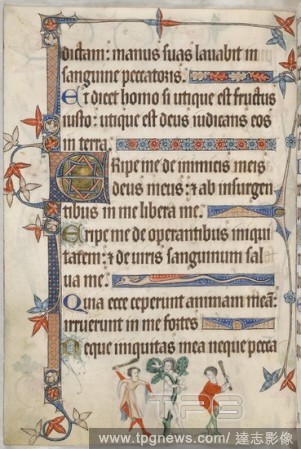 dictam: manus suas lauabit in
sanguine peccatoris.
Et dicet homo si utique est fructus
iusto: utique est deus iudicans eos
in terra.
Eripe me de inimicis meis
deus meus: & ab insurgen
tibus in me libera me.
Eripe me de operantibus iniqui
tatem: & de uiris sanguinum sal
ua me.
Quia ecce ceperunt animam meã:
irruerunt in me fortes
Neque iniquitas mea neque pecca
TPG
www.tpgnews.com/ 達志影像